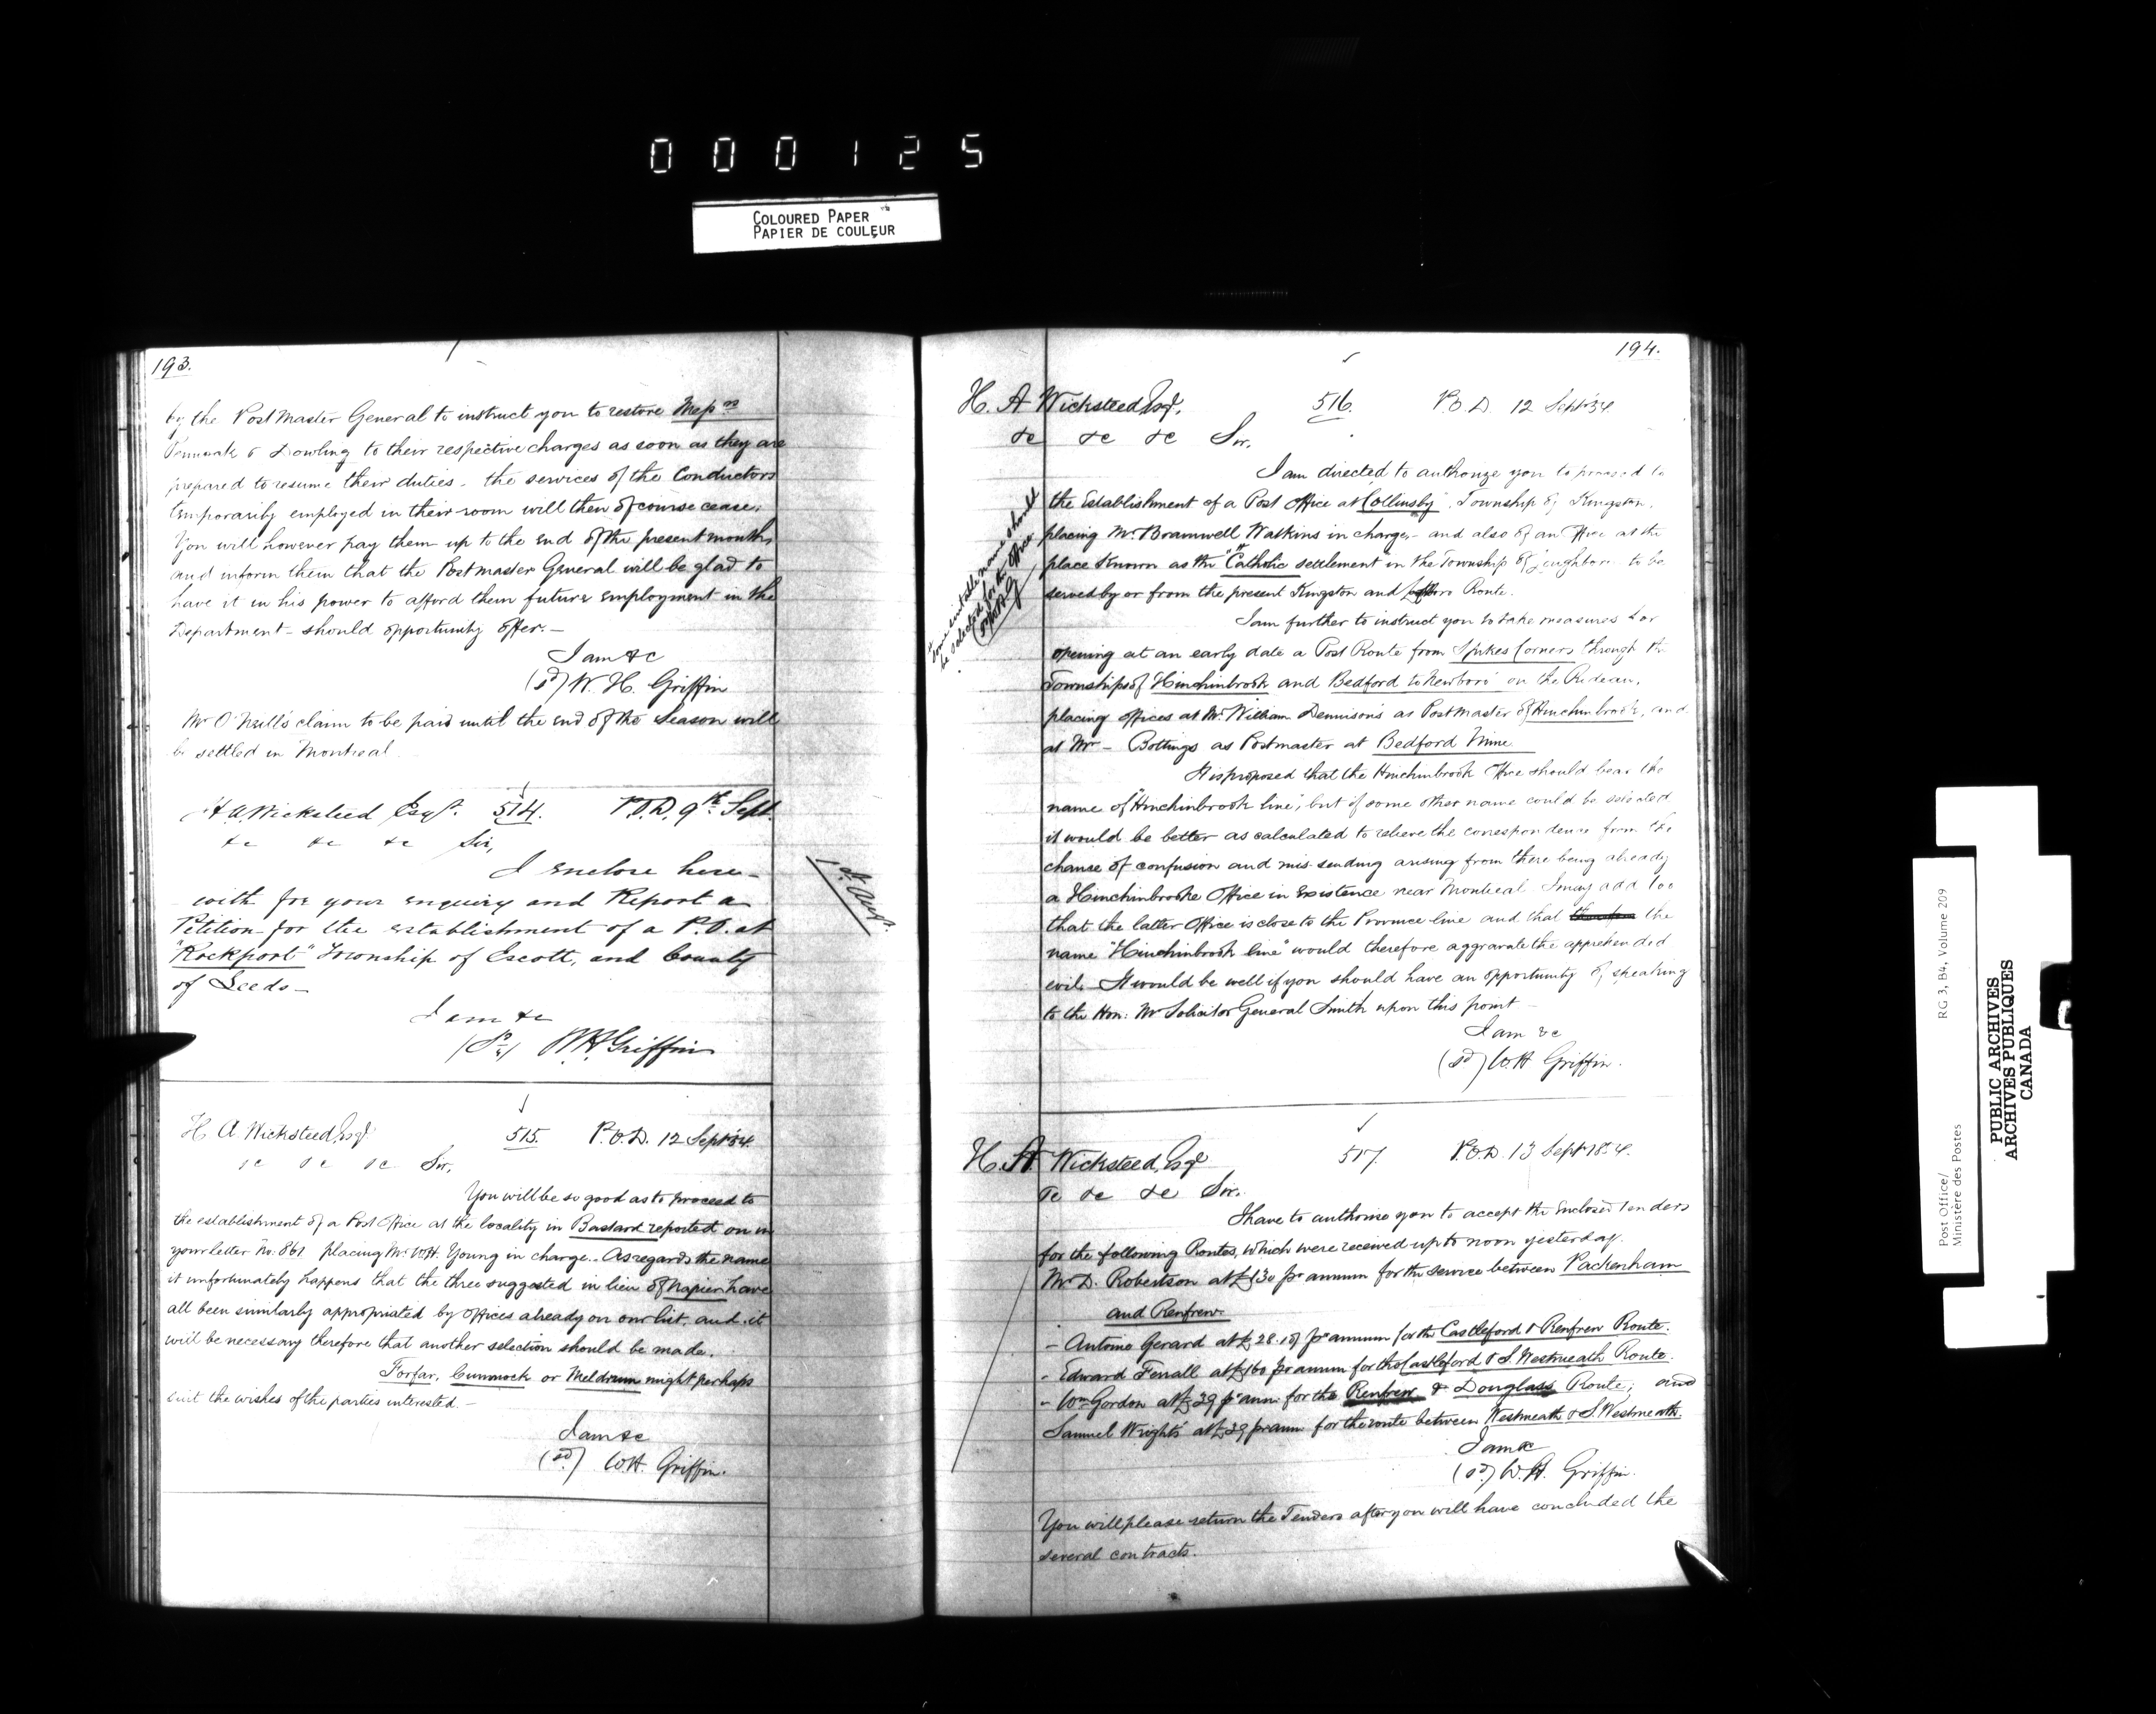 000125
COLOURED PAPER
PAPIER DE COULEUR
193.
by the Post Master General to instruct you to restore Messrs
& Dowling to their respective charges as soon as they are
prepared to resume their duties - the services of the Conductors
temporarily employed in their room will then of course cease.
You will however pay them up to the end of the present month,
and inform them that the Postmaster General will be glad to
have it in his power to afford them future employment in the
Department - should opportunity offer. -
I am &c
(sd) W. H. Griffin
Mr O'Neill's claim to be paid until the end of the Season will
be settled in Montreal.
H. A. Wicksteed Esqr. 514. P.O.D. 9th Sept.
&c &c &c Sir,
I enclose here-
with for your enquiry and Report a
Petition for the establishment of a P.O. at
"Rockport" Township of Escott, and County
of Leeds -
I am &c
(Sd) W H Griffin
1st Augt.
H A Wicksteed, Esqr 515. P.O.D. 12 Sept '54.
&c &c &c Sir,
You will be so good as to proceed to
the establishment of a Post Office at the locality in Bastard reported on in
your letter No. 861 placing Mr. W.H. Young in charge. - As regards the name
it unfortunately happens that the three suggested in lieu of Napier have
all been similarly appropriated by offices already on our list, and it
will be necessary therefore that another selection should be made.
Forfar, Cumnock or Meldrum might perhaps
suit the wishes of the parties interested. -
I am &c
(sd) W.H. Griffin.
194.
H. A Wicksteed, Esqr, 516. P.O.D. 12 Sept '54
&c &c &c Sir,
I am directed to authorize you to proceed to
the Establishment of a Post Office at "Collinsby", Township of Kingston,
placing Mr. Bramwell Watkins in charge, - and also of an Office at the
place known as the "Catholic settlement in the Township of Loughboro to be
served by or from the present Kingston and Route.
# some suitable name should
be selected for the office
I am further to instruct you to take measures for
opening at an early date a Post Route from Spikes Corners through the
Townships of Hinchinbrook and Bedford to Newboro' on the Rideau,
placing offices at Mr. William Dennison's as Postmaster of Hinchinbrook, and
at Mr - Bottings as Postmaster at Bedford Mine
It is proposed that the Hinchinbrook Office should bear the
name of "Hinchinbrook line", but if some other name could be selected
it would be better as calculated to relieve the correspondence from the
chance of confusion and mis-sending arising from there being already
a Hinchinbrooke Office in existence near Montreal. I may add too
that the latter Office is close to the Province line and that the
name "Hinchinbrook line" would therefore aggravate the apprehended
evil. It would be well if you should have an opportunity of speaking
to the Hon: Mr Solicitor General Smith upon this point -
I am &c
(sd) W.H Griffin.
H. A Wicksteed, Esqr 517. P.O.D. 13 Sept 1854.
&c &c &c Sir.
I have to authorise you to accept the Enclosed tenders
for the following Routes, which were received up to noon yesterday.
Mr D. Robertson at £130 pr annum for the service between Packenham
and Renfrew.
- Antoine Gerard at £28.10/ pr annum for the Castleford & Renfrew Route.
- Edward Ferrall at £160 pr annum for the Castleford & S. Westmeath Route.
- Wm Gordon at £39 pr ann for the Renfrew & Douglass Route; and
Samuel Wright at £39 pr ann for the route between Westmeath & S. Westmeath.
I am &c
(sd) W. H. Griffin.
You will please return the Tenders after you will have concluded the
several contracts.
Post Office/
Ministère des Postes
RG 3, B4, Volume 209
PUBLIC ARCHIVES
ARCHIVES PUBLIQUES
CANADA